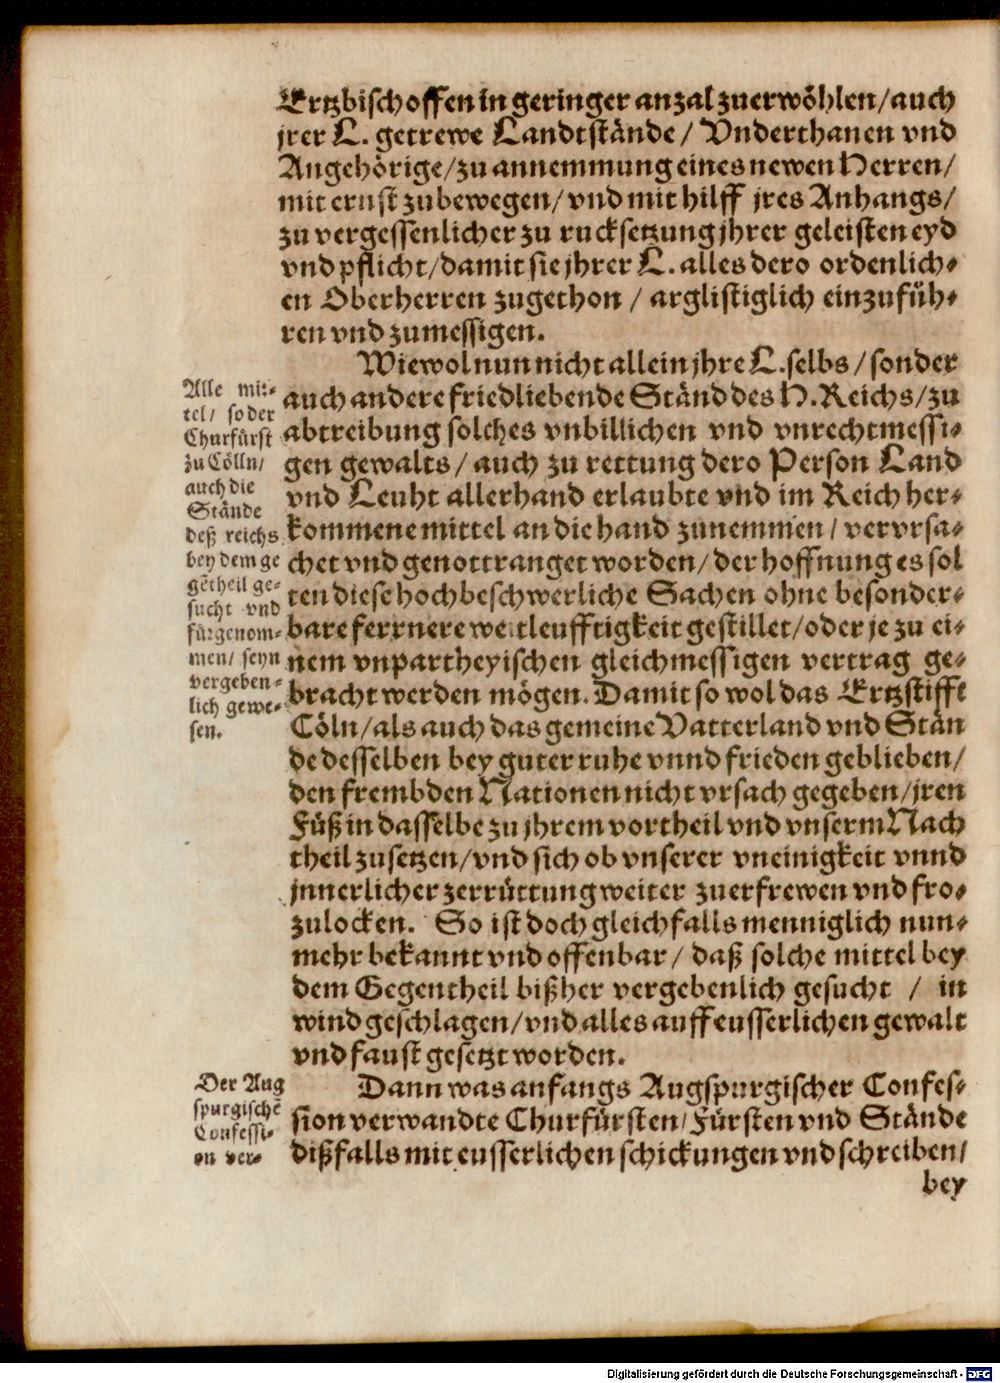 Ertzbischoffen in geringer anzal zuerwöhlen/auch
jrer L. getrewe Landtstände/ Vnderthanen vnd
Angehörige/zu annemmung eines newen Herren/
mit ernst zubewegen/ vnd mit hilff jres Anhangs/
zu vergessenlicher zu rucksetzung jhrer geleisten eyd
vnd pflicht/damit sie jhrer L. alles dero ordenlich-
en Oberherren zugethon / arglistiglich einzufüh-
ren vnd zumessigen.
Wiewol nun nicht allein jhre L. selbs / sonder
auch andere friedliebende Ständ des H. Reichs/zu
abtreibung solches vnbillichen vnd vnrechtmessi-
gen gewalts/ auch zu rettung dero Person Land
vnd Leuht allerhand erlaubte vnd im Reich her-
kommene mittel an die hand zunemmen/ vervrsa-
chet vnd genottranget worden/ der hoffnung es sol
ten diese hochbeschwerliche Sachen ohne besonder-
bare ferrnere weitleufftigkeit gestillet/oder je zu ei-
nem vnpartheyischen gleichmessigen vertrag ge-
bracht werden mögen. Damit so wol das Ertzstifft
Cöln/als auch das gemeine Vatterland vnd Stän
de desselben bey guter ruhe vnnd frieden geblieben/
den frembden Nationen nicht vrsach gegeben/jren
Füß in dasselbe zu jhrem vortheil vnd vnserm Nach
theil zusetzen/vnd sich ob vnserer vneinigkeit vnnd
jnnerlicher zerrüttung weiter zuerfrewen vnd fro-
zulocken. So ist doch gleichfalls menniglich nun-
mehr bekannt vnd offenbar/ daß solche mittel bey
dem Gegentheil bißher vergebenlich gesucht / in
wind geschlagen/vnd alles auff eusserlichen gewalt
vnd faust gesetzt worden.
Dann was anfangs Augspurgischer Confes-
sion verwandte Churfürsten/Fürsten vnd Stände
dißfalls mit eusserlichen schickungen vnd schreiben/
bey
Alle mit-
tel/ so der
Churfürst
zu Cölln/
auch die
Stände
deß reichs
bey dem ge
gētheil ge-
sucht vnd
fürgenom-
men/ seyn
vergeben-
lich gewe-
sen.
Der Aug
spurgischē
Confessi-
on ver-
Digitalisierung gefördert durch die Deutsche Forschungsgemeinschaft - DFG